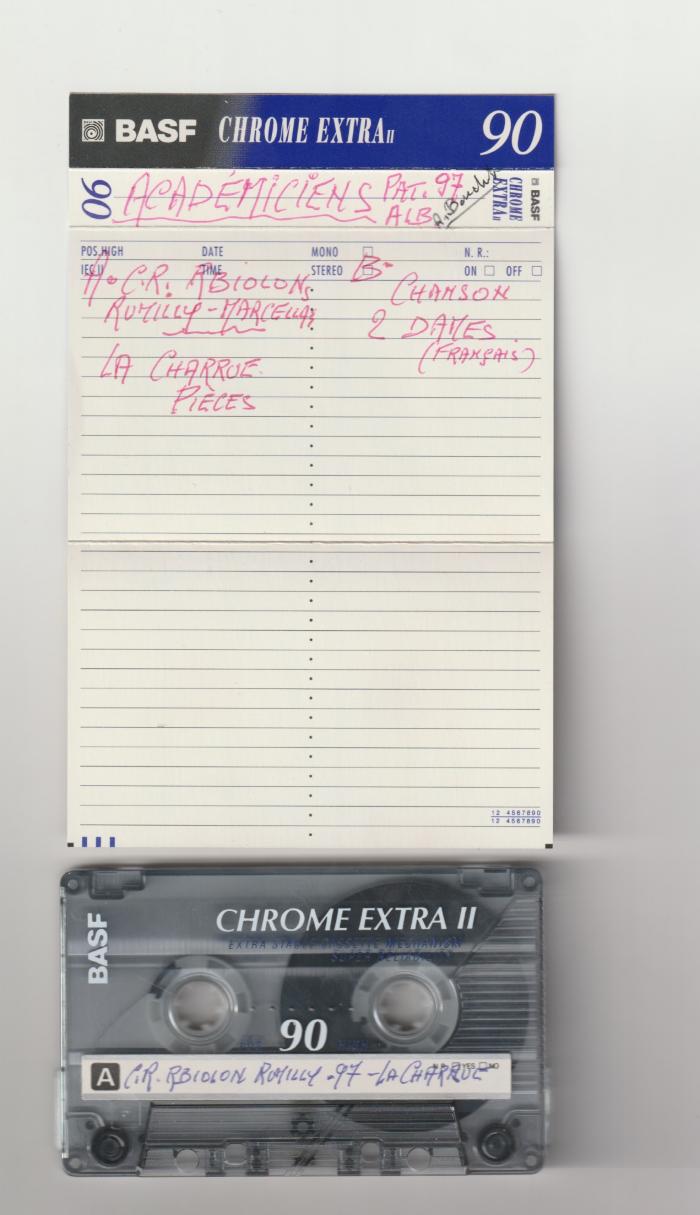 BASF CHROME EXTRA II 90
90 ACADÉMICIENS PAT. 97
ALB
BASF CHROME EXTRA II
POS.HIGH DATE MONO N. R.:
IEC II TIME STEREO ON OFF
A. C.R. RBIOLON B-
RUMILLY-MARCELLAZ
CHANSON
2 DAMES.
(FRANÇAIS)
LA CHARRUE
PIÈCES
12 4567890
12 4567890
BASF
CHROME EXTRA II
EXTRA STABLE CASSETTE MECHANISM
SUPER RELIABILITY
90
A C.R. RBIOLON RUMILLY .97 - LA CHARRUE
YES NO